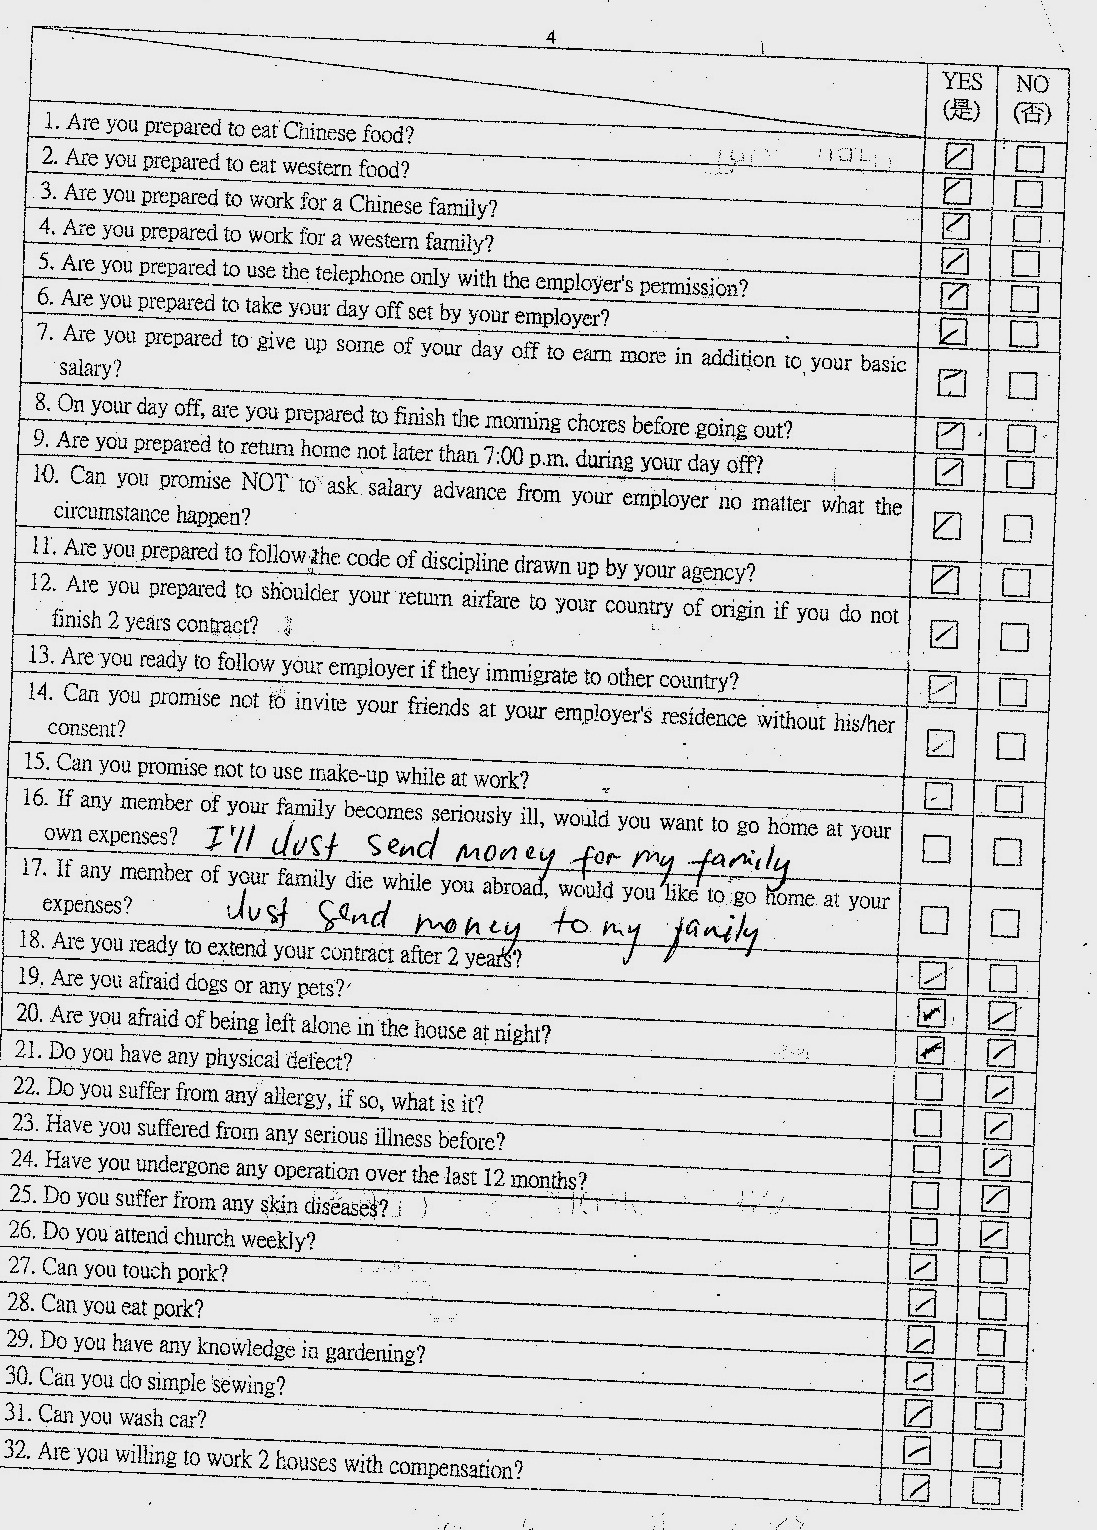 4
YES NO
(是) (否)
1. Are you prepared to eat Chinese food?
2. Are you prepared to eat western food?
3. Are you prepared to work for a Chinese family?
4. Are you prepared to work for a western family?
5. Are you prepared to use the telephone only with the employer's permission?
6. Are you prepared to take your day off set by your employer?
7. Are you prepared to give up some of your day off to earn more in addition to your basic
salary?
8. On your day off, are you prepared to finish the morning chores before going out?
9. Are you prepared to return home not later than 7:00 p.m. during your day off?
10. Can you promise NOT to ask salary advance from your employer no matter what the
circumstance happen?
11. Are you prepared to follow the code of discipline drawn up by your agency?
12. Are you prepared to shoulder your return airfare to your country of origin if you do not
finish 2 years contract?
13. Are you ready to follow your employer if they immigrate to other country?
14. Can you promise not to invite your friends at your employer's residence without his/her
consent?
15. Can you promise not to use make-up while at work?
16. If any member of your family becomes seriously ill, would you want to go home at your
own expenses? I'll Just send money for my family
17. If any member of your family die while you abroad, would you like to go home at your
expenses? Just send money to my family
18. Are you ready to extend your contract after 2 years?
19. Are you afraid dogs or any pets?
20. Are you afraid of being left alone in the house at night?
21. Do you have any physical defect?
22. Do you suffer from any allergy, if so, what is it?
23. Have you suffered from any serious illness before?
24. Have you undergone any operation over the last 12 months?
25. Do you suffer from any skin diseases?
26. Do you attend church weekly?
27. Can you touch pork?
28. Can you eat pork?
29. Do you have any knowledge in gardening?
30. Can you do simple sewing?
31. Can you wash car?
32. Are you willing to work 2 houses with compensation?